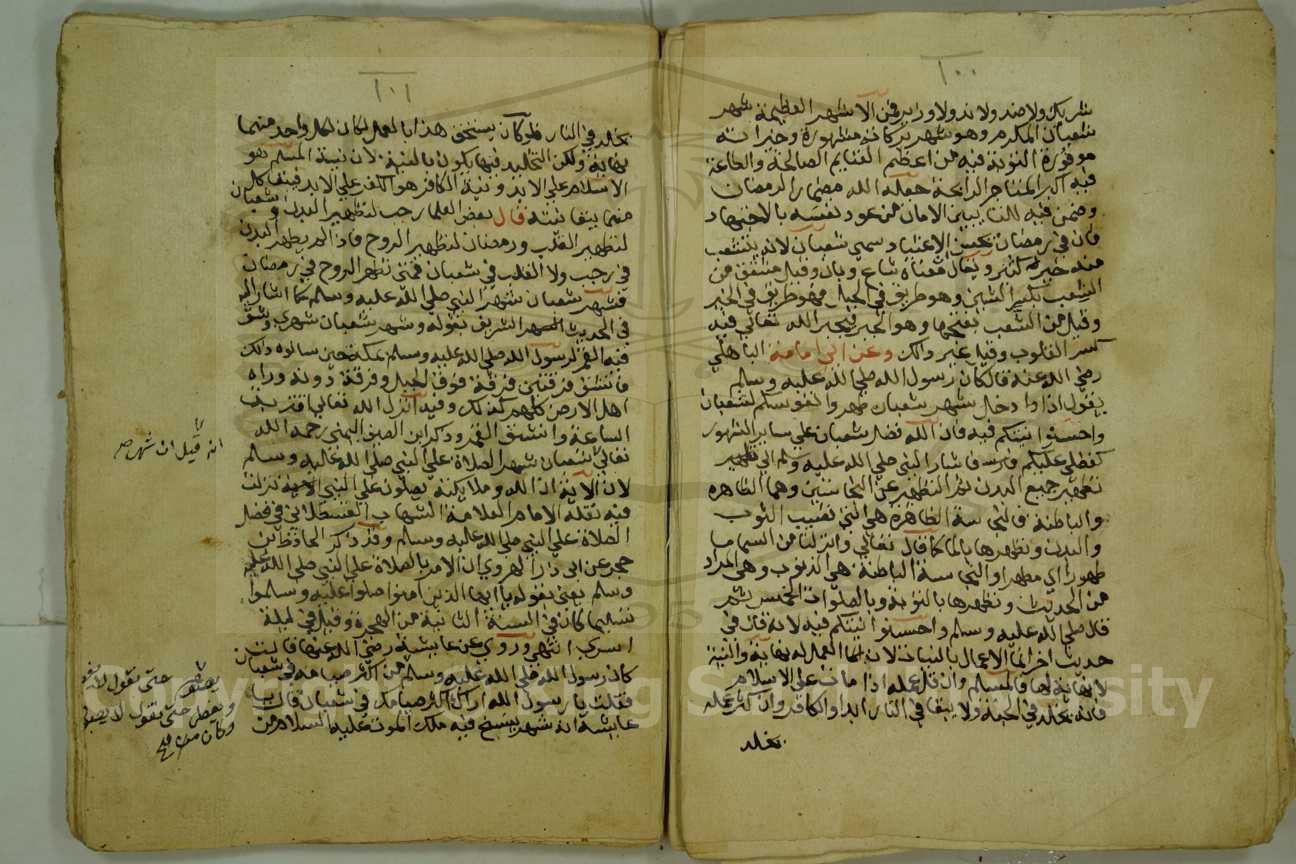 ١٠٠
شريك ولا ضد ولا ند ولا وزير فمن الاشهر العظيمة شهر
شعبان المكرم وهو شهر بركاته مشهورة وخيراته
موفورة التوبة فيه من اعظم الغنايم الصالحة والطاعة
فيه اكبر المتاجر الرابحة جعله الله مضمار الرمضان
وضمن فيه للتايبين الامان من عود نفسه بالاجتهاد
فاز في رمضان بحسن الاعتياد سمي شعبان لانه يتشعب
منه خير كثير ويقال معناه شاع وبان وقيل مشتق من
الشعب بكسر الشين وهو طريق في الجبل فهو طريق في الخير
وقيل من الشعب بفتحها وهو الجبر فيجبر الله تعالي فيه
كسر القلوب وقيل غير ذالك وعن ابي امامة الباهلي
رضي الله عنه قال كان رسول الله صلي الله عليه وسلم
يقول اذا دخل شهر شعبان طهروا انفوسكم لشعبان
واحسنوا نيتكم فيه فان الله فضل شعبان علي ساير الشهور
كفضلي عليكم فاشار النبي صلي الله عليه وسلم الي تطهير
جميع البدن نعم التطهير عن النجاستين وهما الظاهره
والباطنة فالنجاسة الظاهرة هي التي تصيب الثوب
والبدن وتطهرها بالما كما قال تعالي وانزلنا من السما ما
طهورا اي مطهرا والنجاسة الباطنة هي الذنوب وهي المراد
من الحديث وتطهرها بالتوبة وبالصلوات الخمس ثم
قال صلي الله عليه وسلم واحسنوا نيتكم فيه لانه قال في
حديث اخر انما الاعمال بالنيات لان العمل له نهاية والنية
لا نهاية لها فالمسلم وان قل عمله اذا مات علي الاسلام
فانه يخلد في الجنة ولا يبقا في النار ابدا والكافر وان كثر عمله
يخلد
١٠١
يخلد في النار فلو كان يستحق هذا بالعمل لكان لكل واحد منهما
نهاية ولكن التخليد فيها يكون بالنية لان نية المسلم هو
الاسلام علي الابد ونية الكافر هو الكفر علي الابد فيبقا كل
منهما ببقا نيته قال بعض العلما رجب لتطهير البدن وشعبان
لتطهير القلب ورمضان لتطهير الروح فاذا لم يطهر البدن
في رجب ولا القلب في شعبان فمتي تطهر الروح في رمضان
فشهر شعبان شهر النبي صلي الله عليه وسلم كما اشار اليه
في الحديث الشريف بقوله وشهر شعبان شهري وشق
فيه القمر لرسول الله صلي الله عليه وسلم بمكة حين سالوه ذلك
فانشق فرقتين فرقة فوق الجبل وفرقة دونه وراه
اهل الارض كلهم كذلك وفيه انزل الله تعالي اقتربت
الساعة وانشق القمر وذكر ابن الصيف اليمني رحمه الله
تعالي شعبان شهر الصلاة علي النبي صلي الله عليه وسلم
لان الاية ان الله وملايكته يصلون علي النبي الاية نزلت
فيه نقله الامام العلامة الشهاب القسطلاني في فضل
الصلاة علي النبي صلي الله عليه وسلم وقد ذكر الحافظ بن
حجر عن ابي ذر الهروي ان الامر بالصلاة علي النبي صلي الله عليه
وسلم يعني بقوله يا ايها الذين امنوا صلوا عليه وسلموا
تسليما كان في السنة الثانية من الهجرة وقيل في ليلة
اسري انتهي وروي عن عايشة رضي الله عنها قالت
كان رسول الله صلي الله عليه وسلم من اكثر صيامه في شعبان
فقلت يا رسول الله اراك اكثر صيامك في شعبان قال يا
عايشة انه شهر ينسخ فيه ملك الموت عليه السلام من
انه قيل ان شهر
يصوم حتى نقول لا يفطر
ويفطر حتى نقول لا يصوم
وكان
Copyright © King Saud University